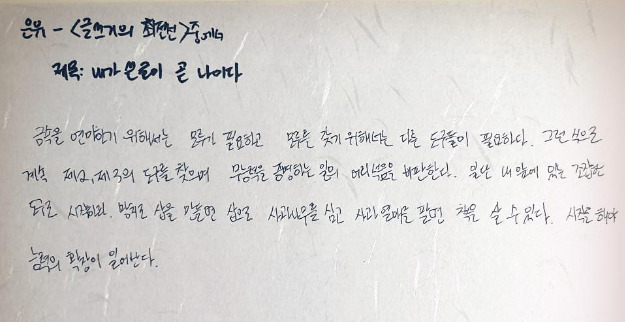 은유 - <글쓰기의 최전선> 중에서
제목: 내가 쓴 글이 곧 나이다
금속을 연마하기 위해서는 모루가 필요하고 모루를 갖기 위해서는 다른 도구들이 필요하다. 그런 식으로
계속 제2, 제3의 도구를 찾으며 무능력을 증명하는 일의 어리석음을 비판한다. 일단 내 앞에 있는 조잡한
도구로 시작하라. 망치로 삽을 만들면 삽으로 사과나무를 심고 사과 열매를 팔면 책을 살 수 있다. 시작을 해야
능력의 확장이 일어난다.